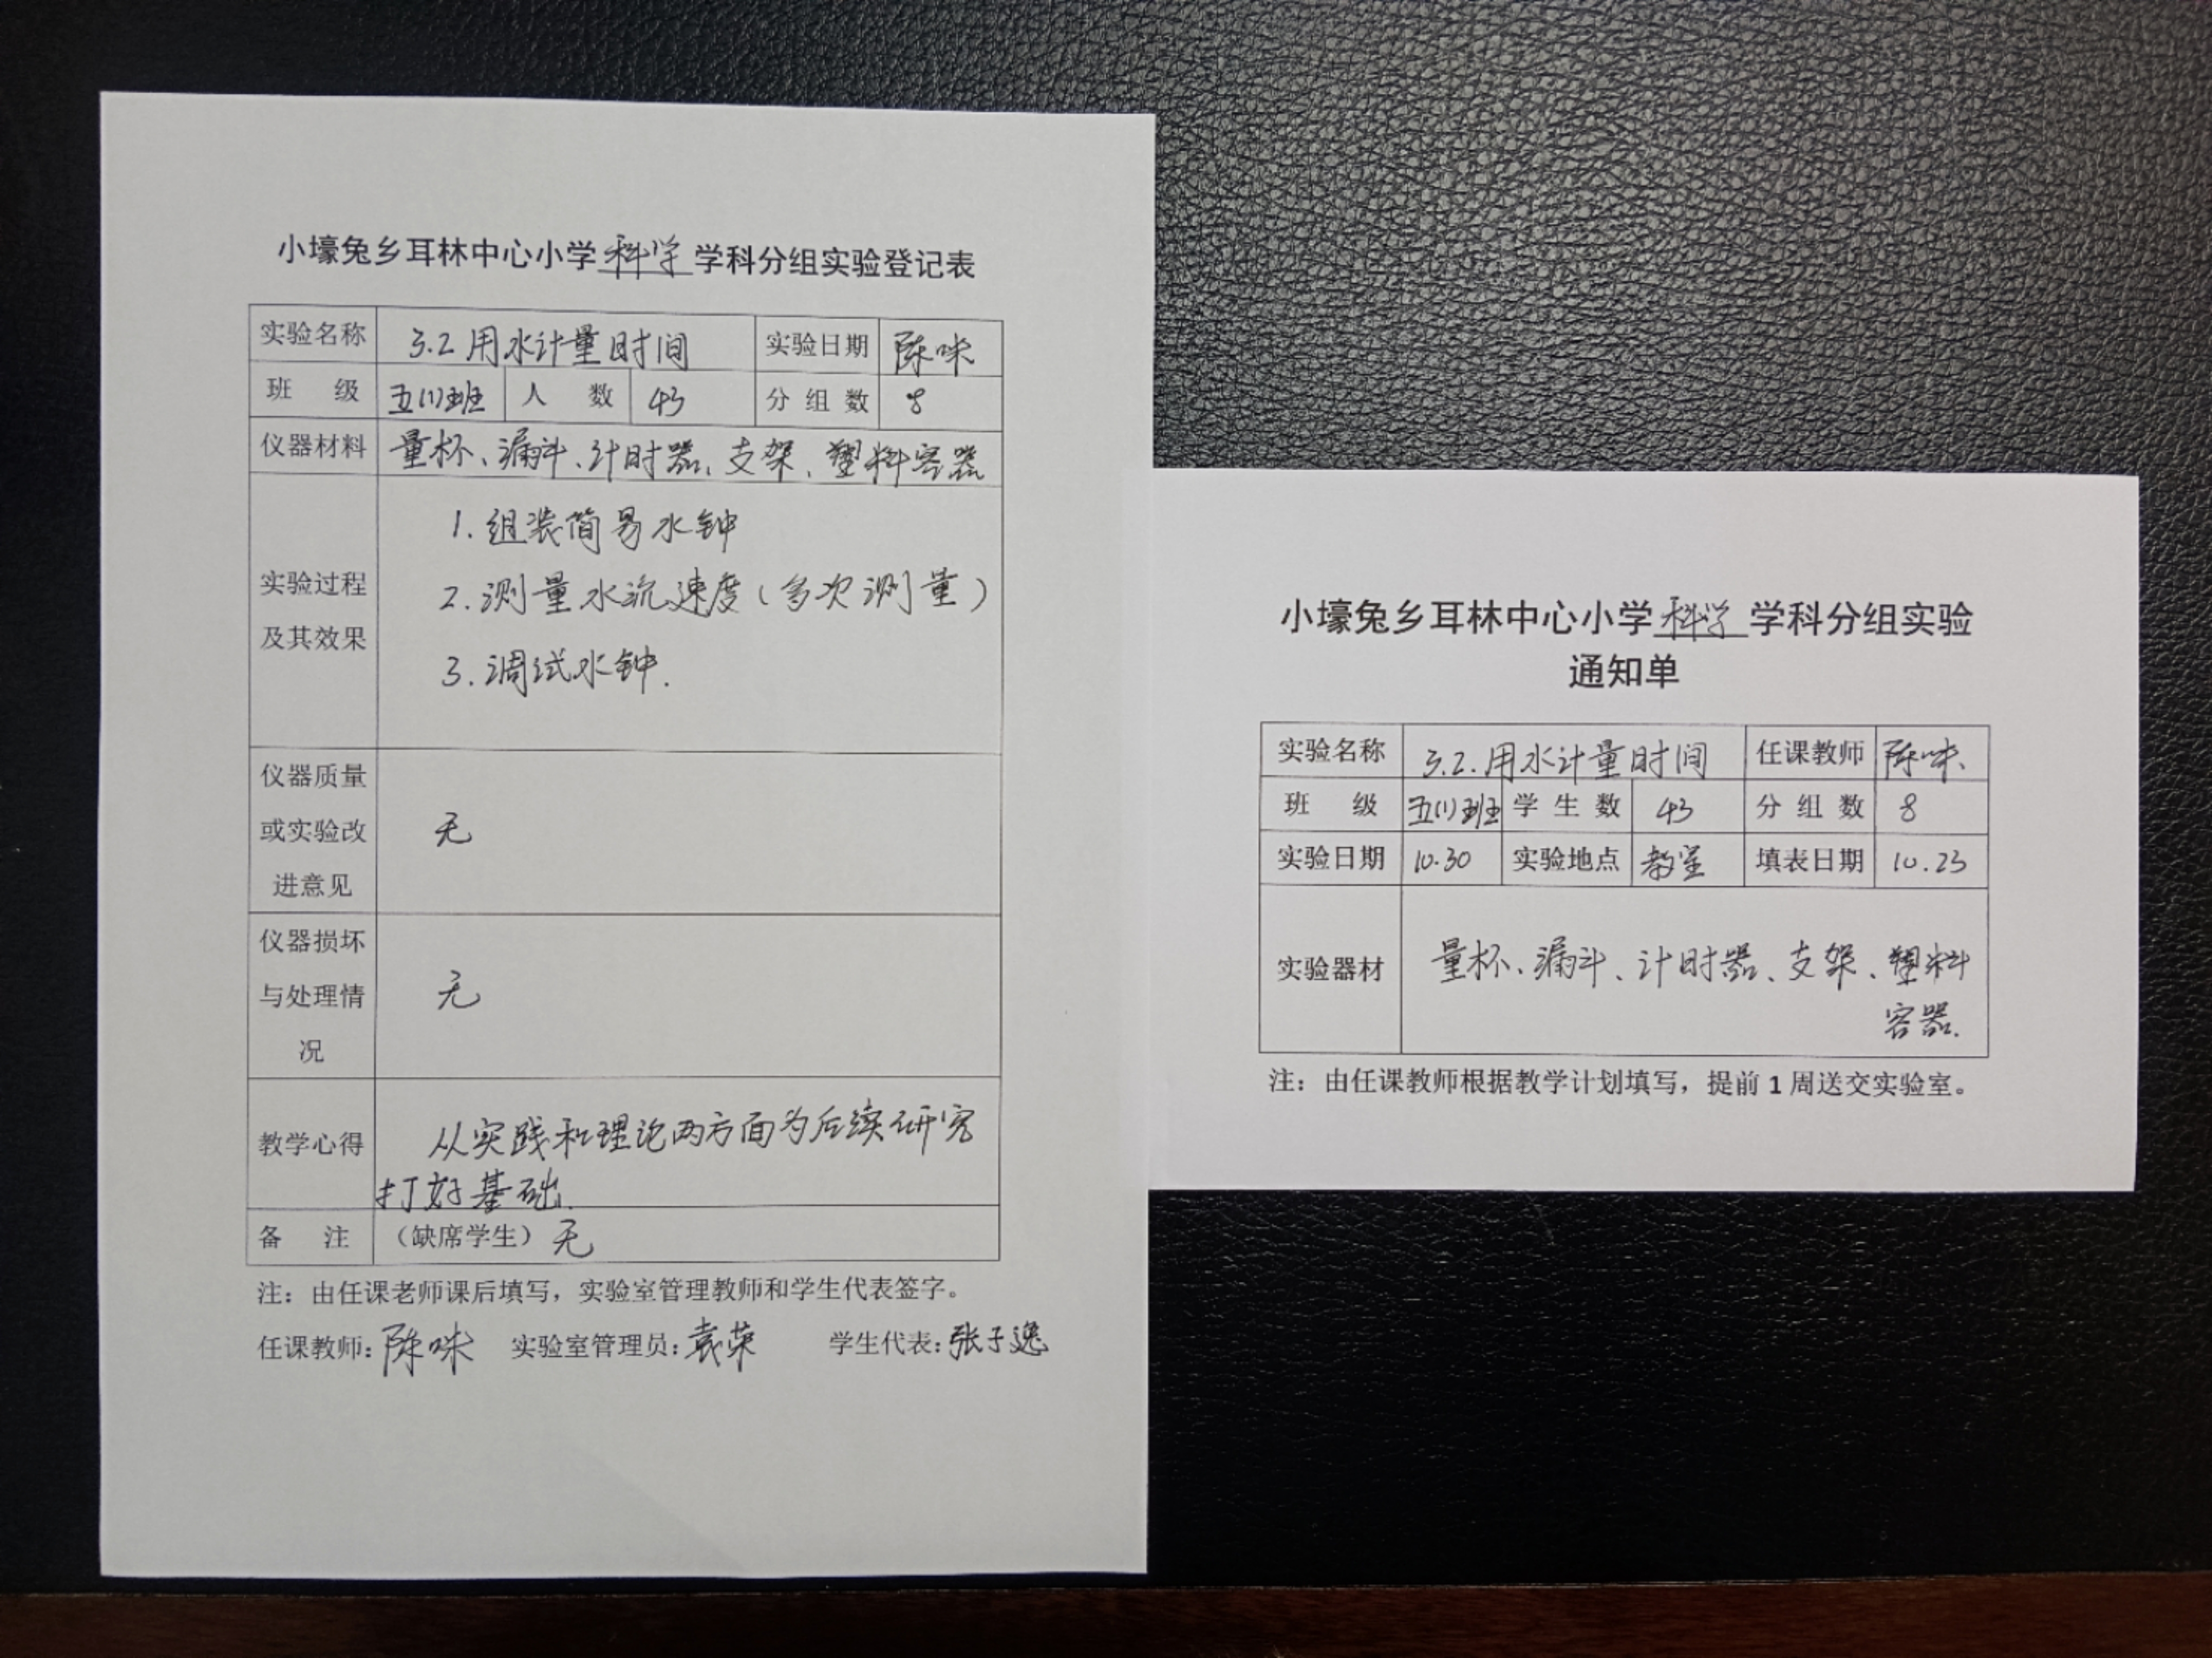 小壕兔乡耳林中心小学科学学科分组实验登记表
实验名称 3.2用水计量时间 实验日期 陈咪
班 级 五(1)班 人 数 43 分组数 8
仪器材料 量杯、漏斗、计时器、支架、塑料容器
实验过程及其效果
1.组装简易水钟
2.测量水流速度(多次测量)
3.调试水钟.
仪器质量
或实验改 无
进意见
仪器损坏
与处理情 无
况
教学心得 从实践和理论两方面为后续研究
打好基础.
备 注 (缺席学生) 无
注：由任课老师课后填写，实验室管理教师和学生代表签字。
任课教师: 陈咪 实验室管理员: 袁荣 学生代表: 张子逸
小壕兔乡耳林中心小学科学学科分组实验
通知单
实验名称 3.2.用水计量时间 任课教师 陈咪
班 级 五(1)班 学生数 43 分组数 8
实验日期 10.30 实验地点 教室 填表日期 10.23
实验器材 量杯、漏斗、计时器、支架、塑料
容器.
注：由任课教师根据教学计划填写，提前1周送交实验室。